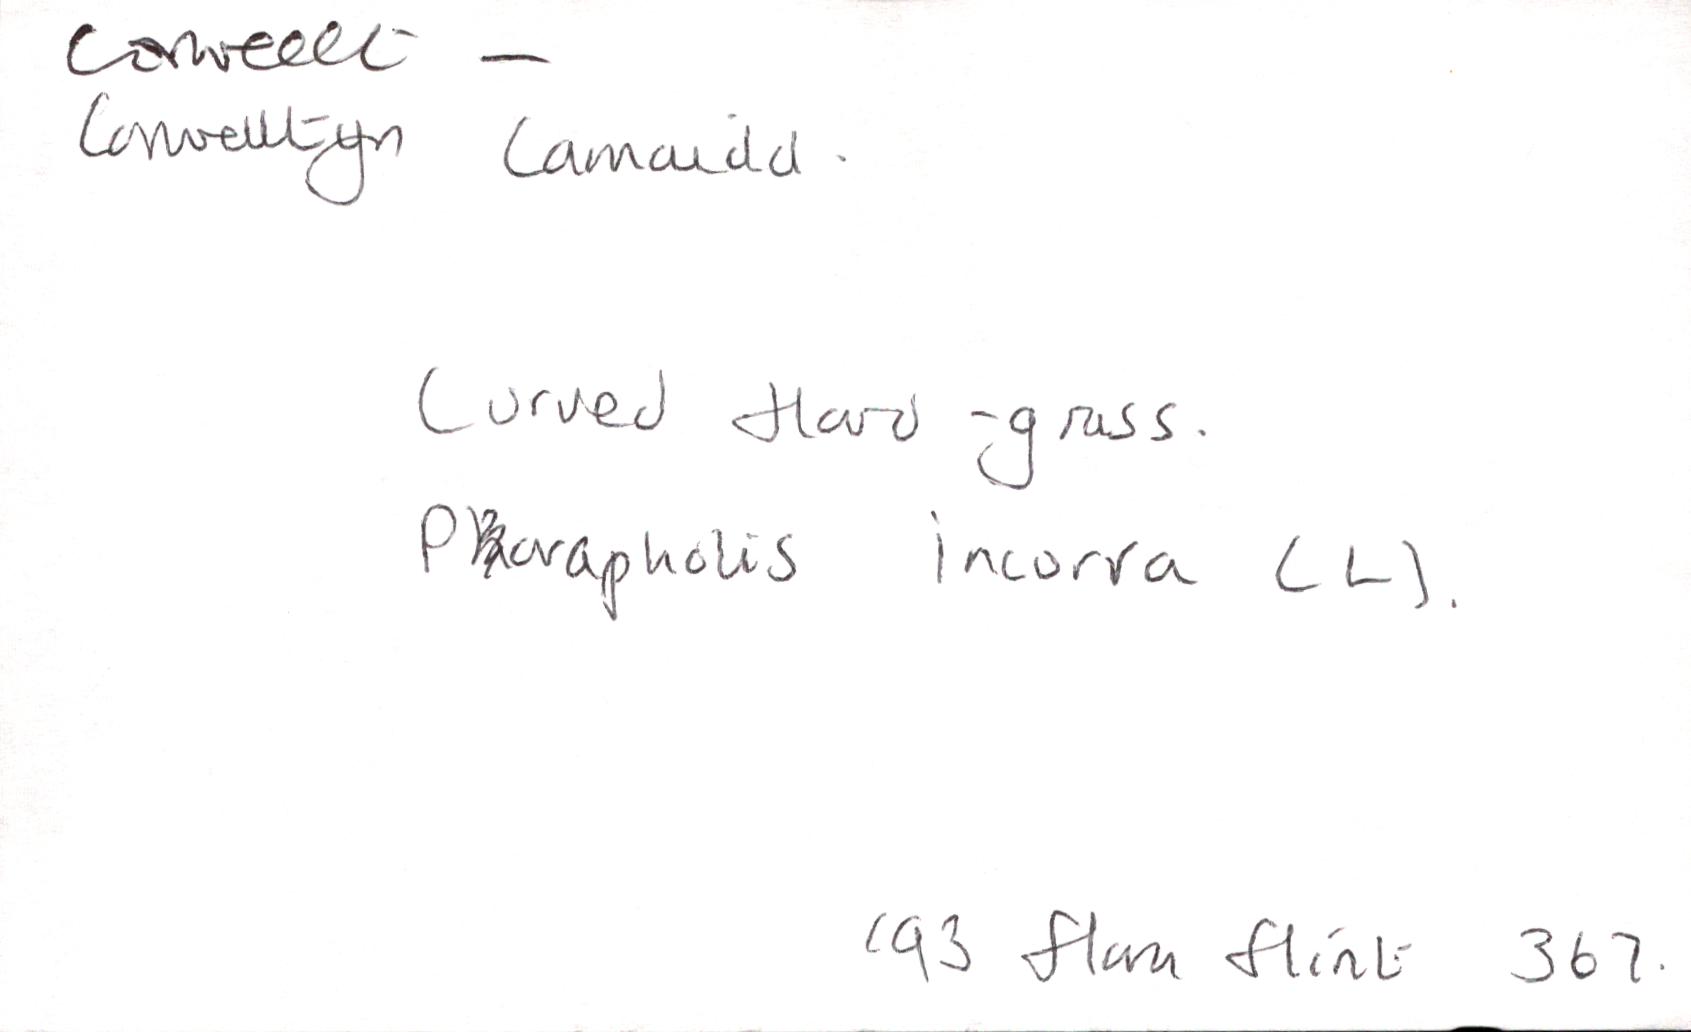 Corwellt —
Corwelltyn Camaidd.
Curved Hard-grass.
Parapholis incurva (L).
'93 Flora Flint 367.